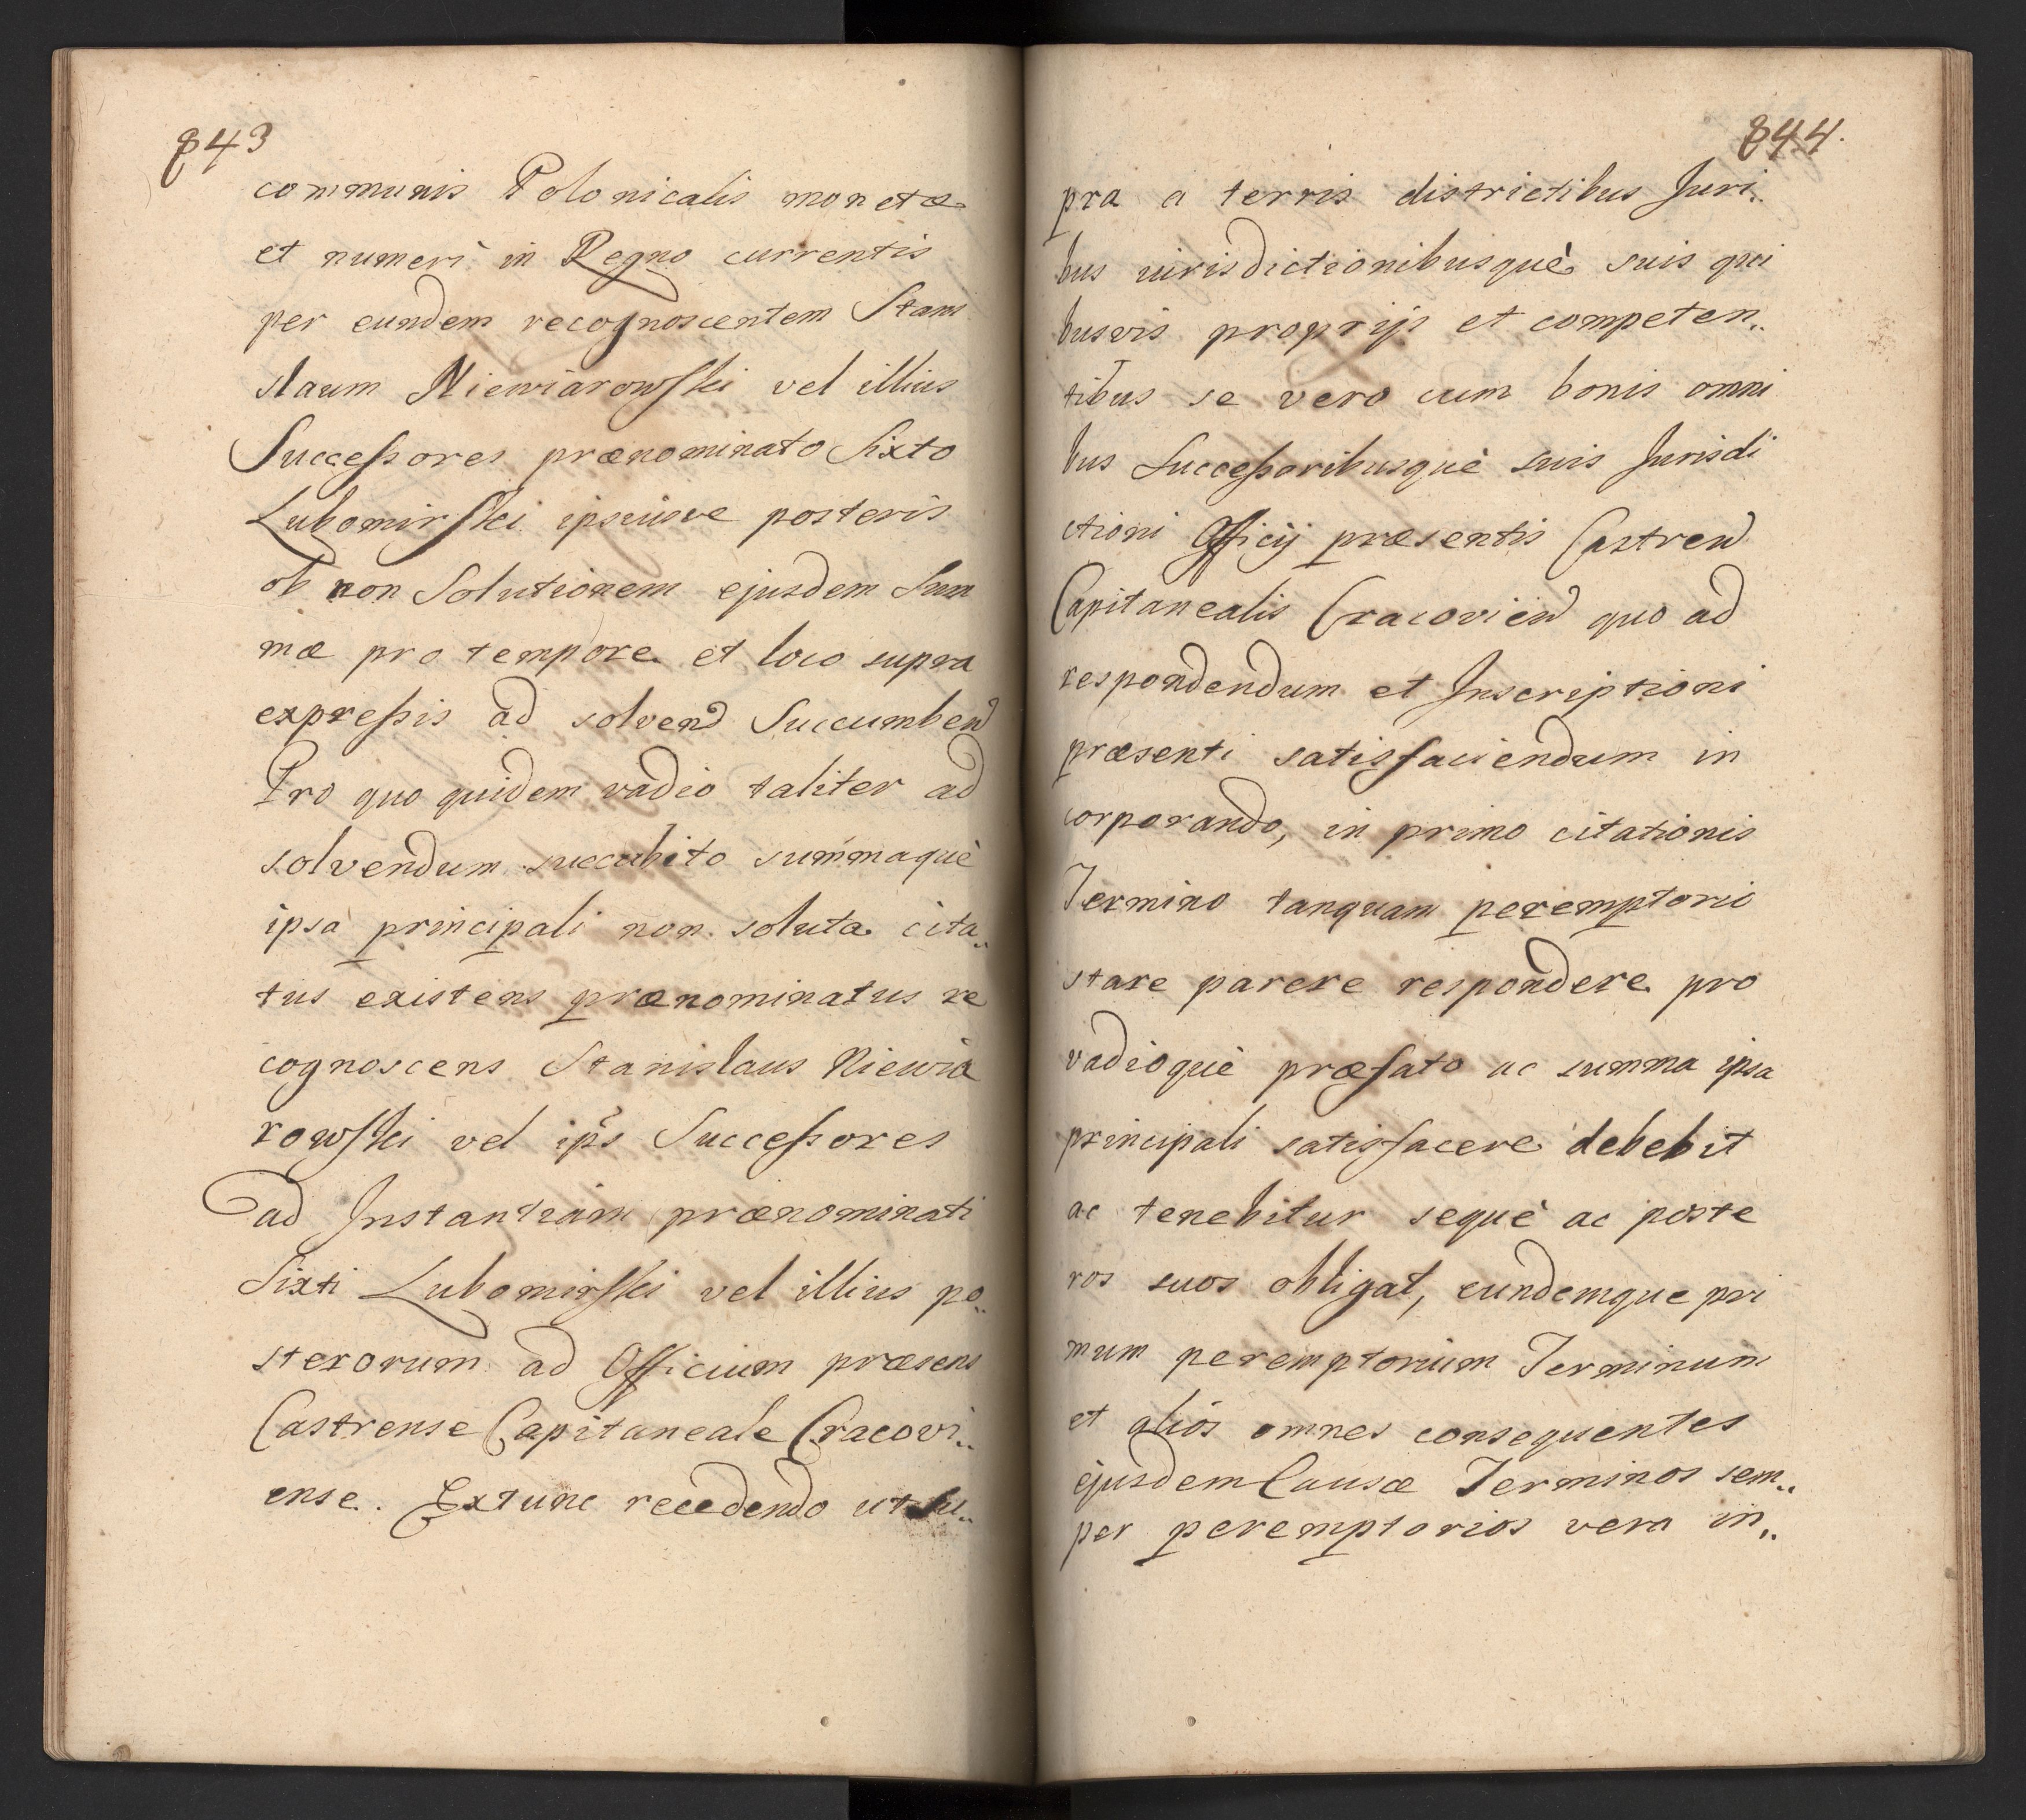 843
communis Polonicalis monetæ
et numeri in Regno currentis
per eundem recognoscentem Stani
slaum Niewiarowski vel illius
Successores prænominato Sixto
Lubomirski ipsiusve posteris
ob non Solutionem ejusdem Sum
mæ pro tempore et loco supra
expressis ad solvend Succumben
Pro quo quidem vadio taliter ad
solvendum succubito summaquè
ipsa principali non soluta cita„
tus existens prænominatus re
cognoscens Stanislaus Niewia
rowski vel ips Successores
ad Instantiam prænominati
Sixti Lubomirski vel illius po„
sterorum ad Officium præsens
Castrense Capitaneale Cracovi„
ense. Extunc recedendo ut su„
844.
pra a terris districtibus Juri„
bus iurisdictionibusquè suis qui
busvis proprijs et competen„
tibus se vero cum bonis omni
bus Successoribusquè suis Jurisdi
ctioni Officij præsentis Castren
Capitanealis Cracovien quo ad
respondendum et Inscriptioni
præsenti satisfaciendum in
corporando, in primo citationis
Termino tanquam peremptorio
stare parere respondere pro
vadioquè præfato ac summa ipsa
principali satisfacere debebit
ac tenebitur sequè ac poste
ros suos obligat, eundemque pri
mum peremptorium Terminum
et alios omnes consequentes
ejusdem Causæ Terminos sem„
per peremptorios vera in„